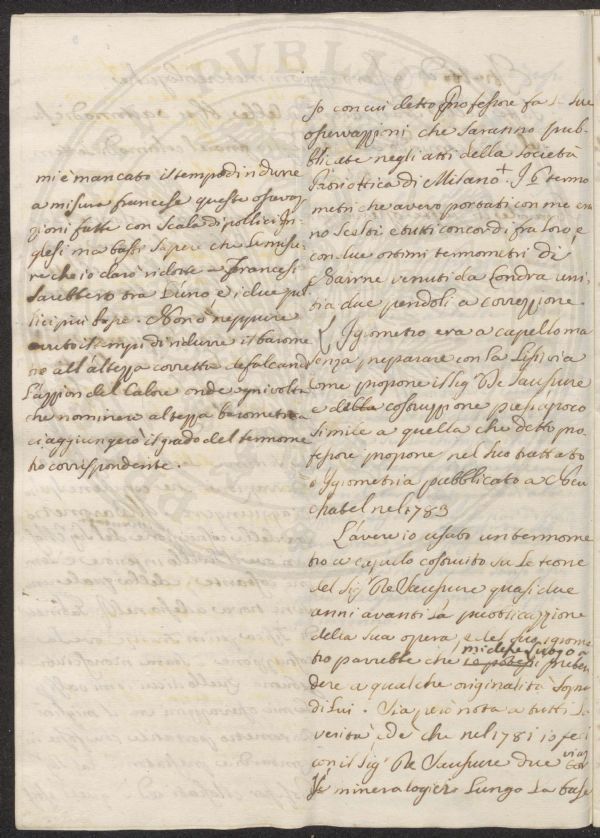 mi è mancato il tempo di ridurre
a misura francese queste osservaz-
zioni fatte con Scala di pollici In-
glesi ma basti sapere che le misu-
re che io darò ridotte a Francesi
sarebbero tra l'uno e i due pol-
lici più basse. Non ò neppure
avuto il tempo di ridurre il barome-
tro all'altezza corretta defalcando
l'azzion del Calore onde ogni volta
che nominerò altezza barometrica
ci aggiungerò il grado del termome-
tro corrispondente.
so con cui detto Professore fa le sue
osservazzioni che saranno pub-
blicate negli atti della società
Patriottica di Milano + I termo
metri che avevo portati con me era
no scelti e tutti concordi fra loro, e
con due ottimi termometri di
Nairne venuti da Londra uni-
ti a due pendoli a correzzione.
L'Igrometro era a capello ma
senza preparare con la Lissivia
come propone il Sig. De Saussure
e della costruzzione presso a poco
simile a quella che detto pro-
fessore propone nel suo trattato
d'Igrometria pubblicato a Neu
chatel nel 1783
L'aver io usato un termome
tro a capello costruito su le teorie
del Sig. De Saussure quasi due
anni avanti la pubblicazzione
della sua opera, e del suo igrome
tro parrebbe che mi desse luogo a preten
dere a qualche originalità sopra
di Lui. Sia però nota a tutti la
verità ed è che nel 1781 io feci
con il Sig. De Saussure due viag
gi mineralogici lungo la base
PVBLI